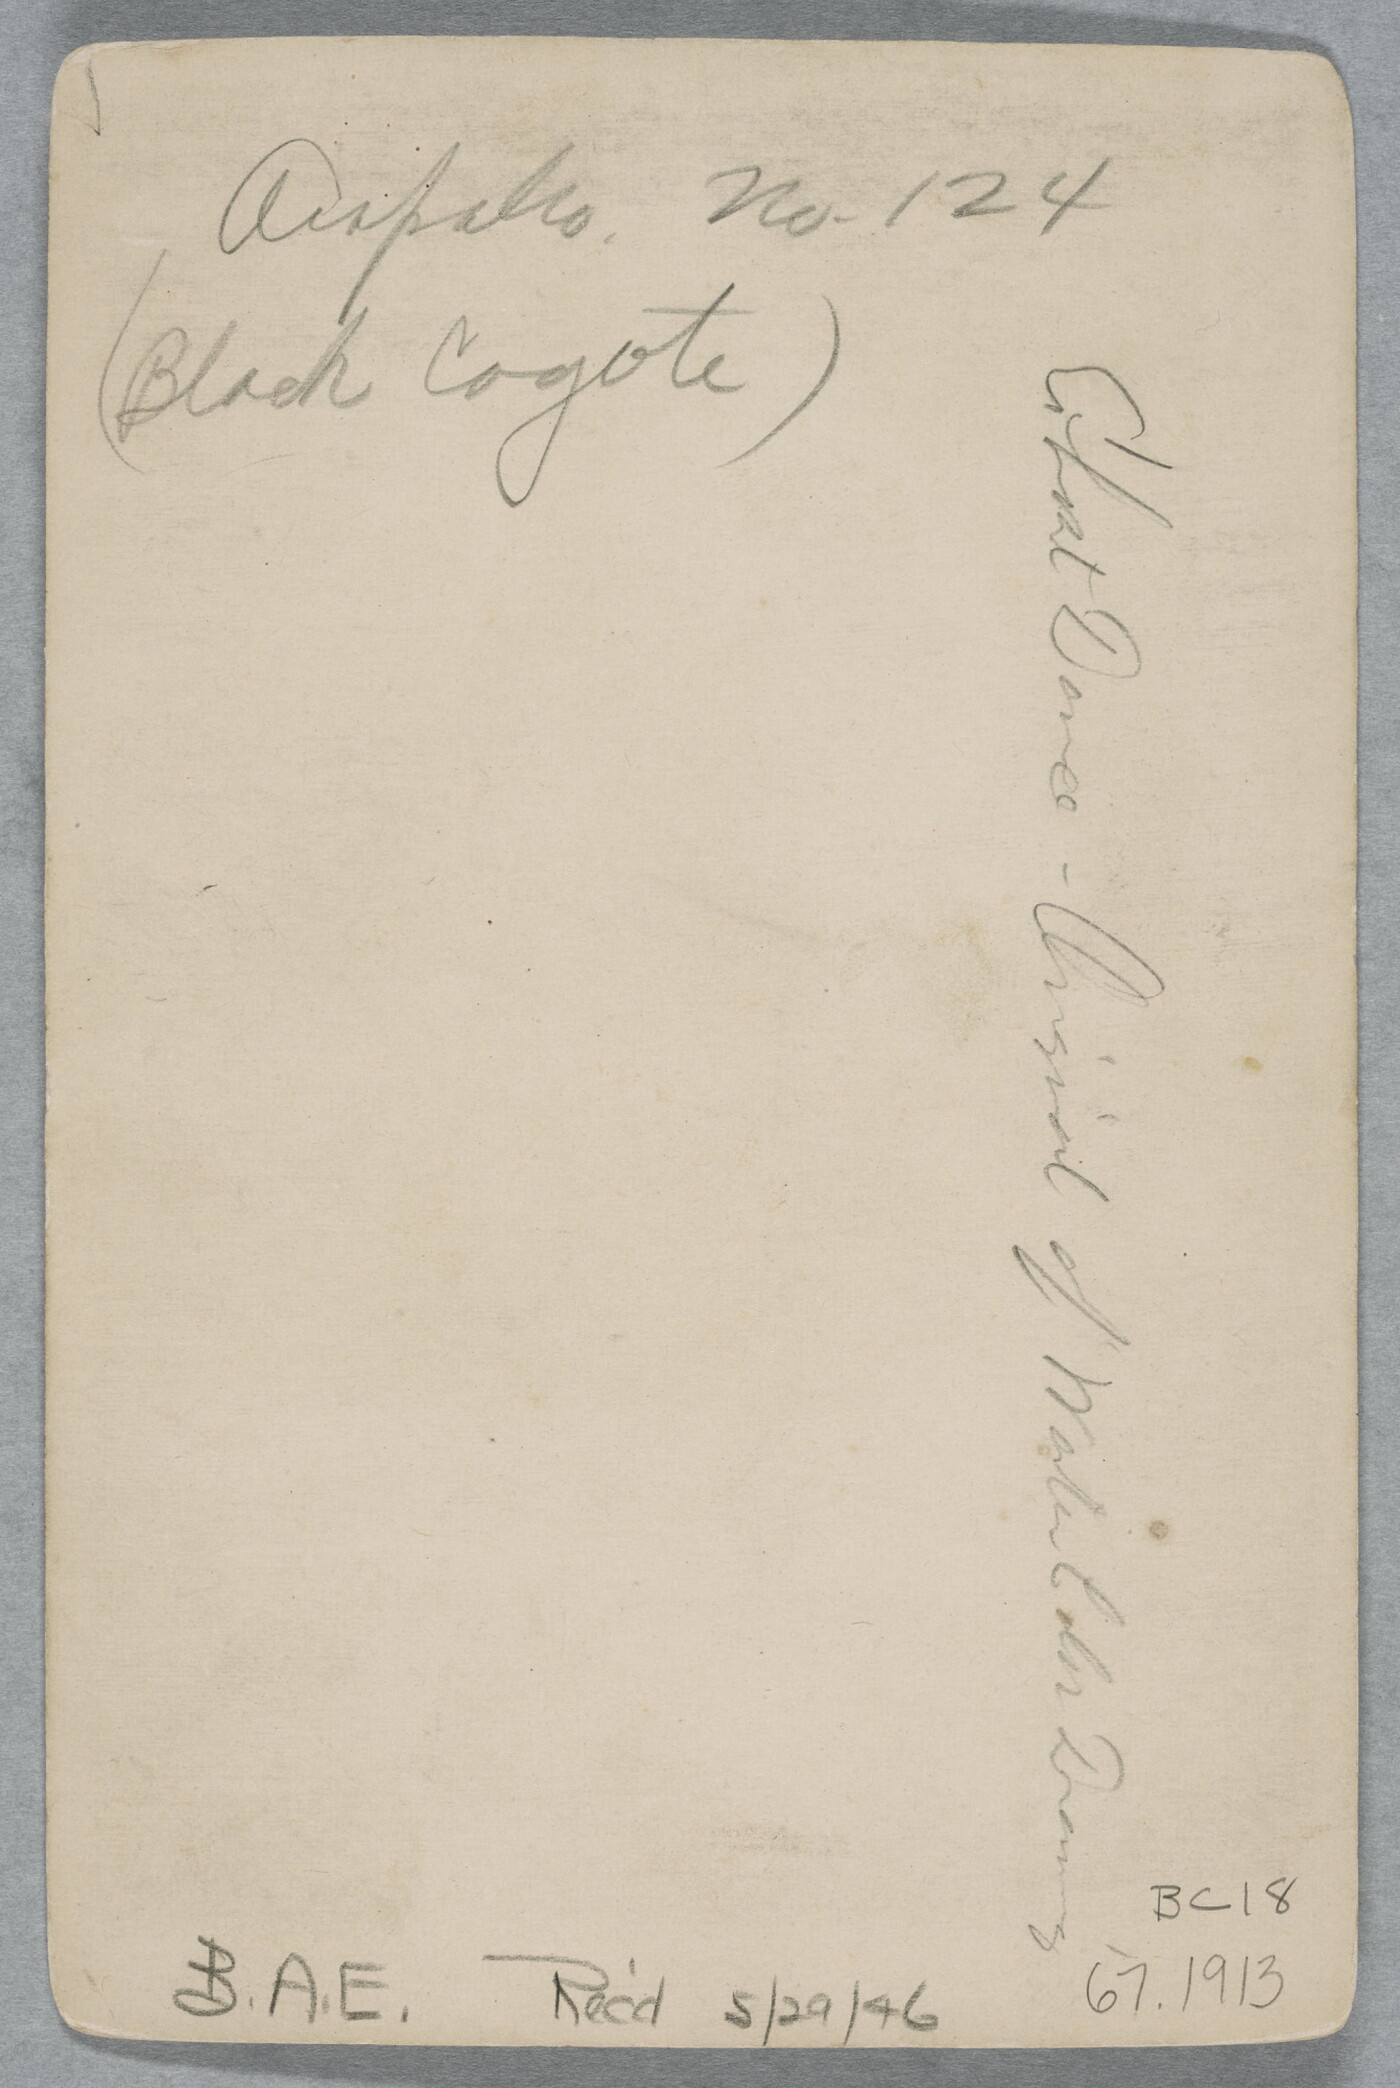 Arapaho. No. 124
(Black Coyote)
Ghost Dance - Original of Water Color Drawing
BC18
67.1913
B.A.E. Rec'd 5/29/46